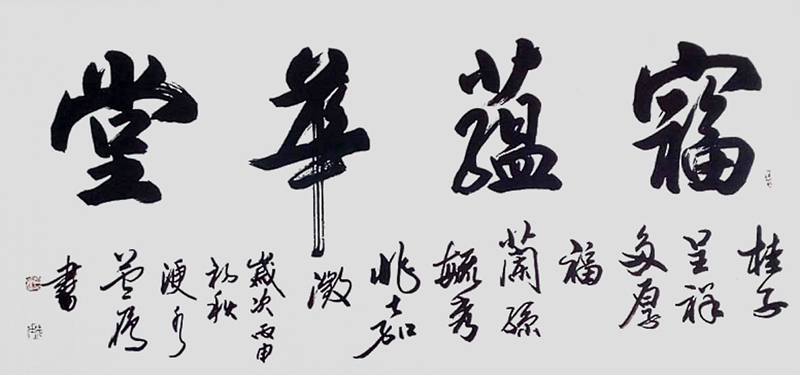 福蘊華堂
桂子
呈祥
多厚
福
蘭孫
毓秀
兆嘉
徵
歲次丙申
初秋
浭水
書